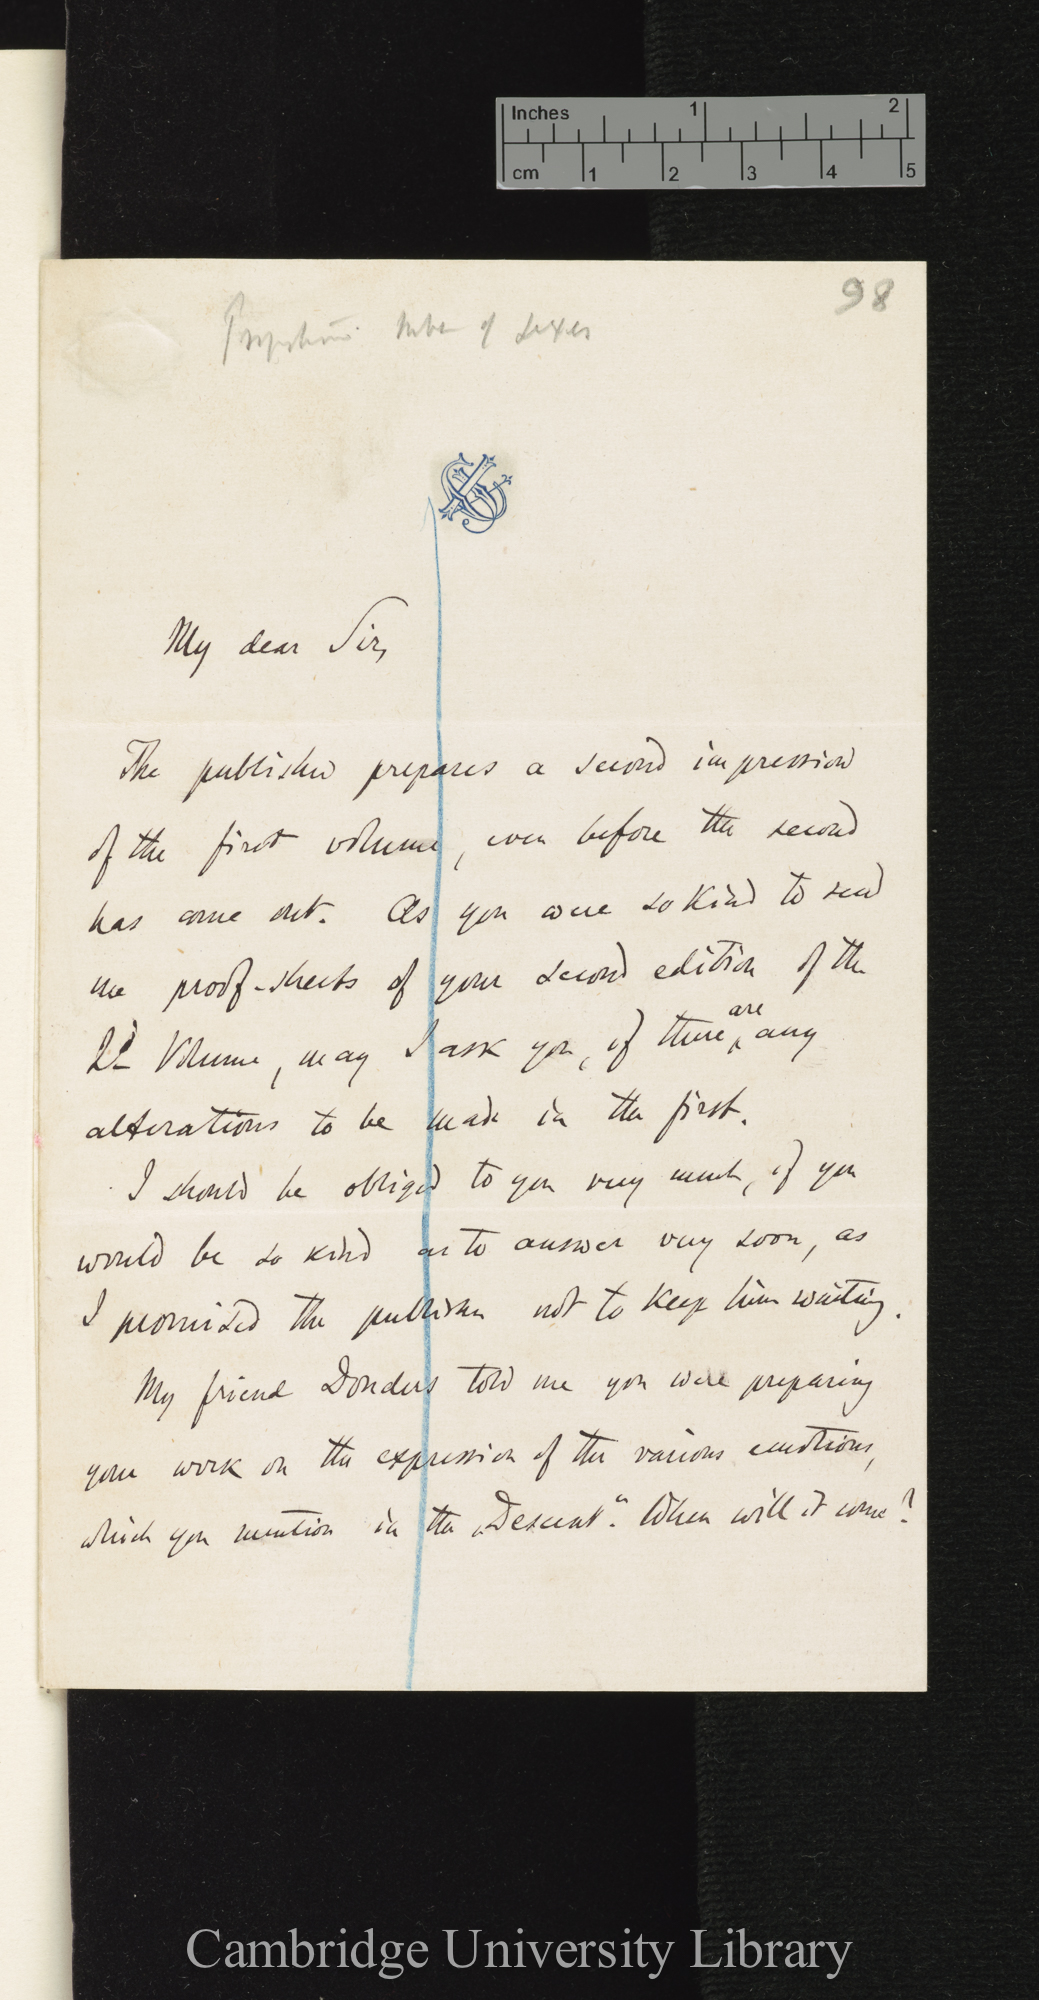 Inches 1 2
cm 1 2 3 4 5
98
Proportion. Number of Sexes
My dear Sir,
The publisher prepares a second impression
of the first volume, even before the second
has come out. As you were so kind to send
me proof-sheets of your second edition of the
2d Volume, may I ask you, if there are any
alterations to be made in the first.
I should be obliged to you very much, if you
would be so kind as to answer very soon, as
I promised the publisher not to keep him waiting.
My friend Donders told me you were preparing
your work on the expression of the various emotions,
which you mention in the „Descent“. When will it come?
Cambridge University Library